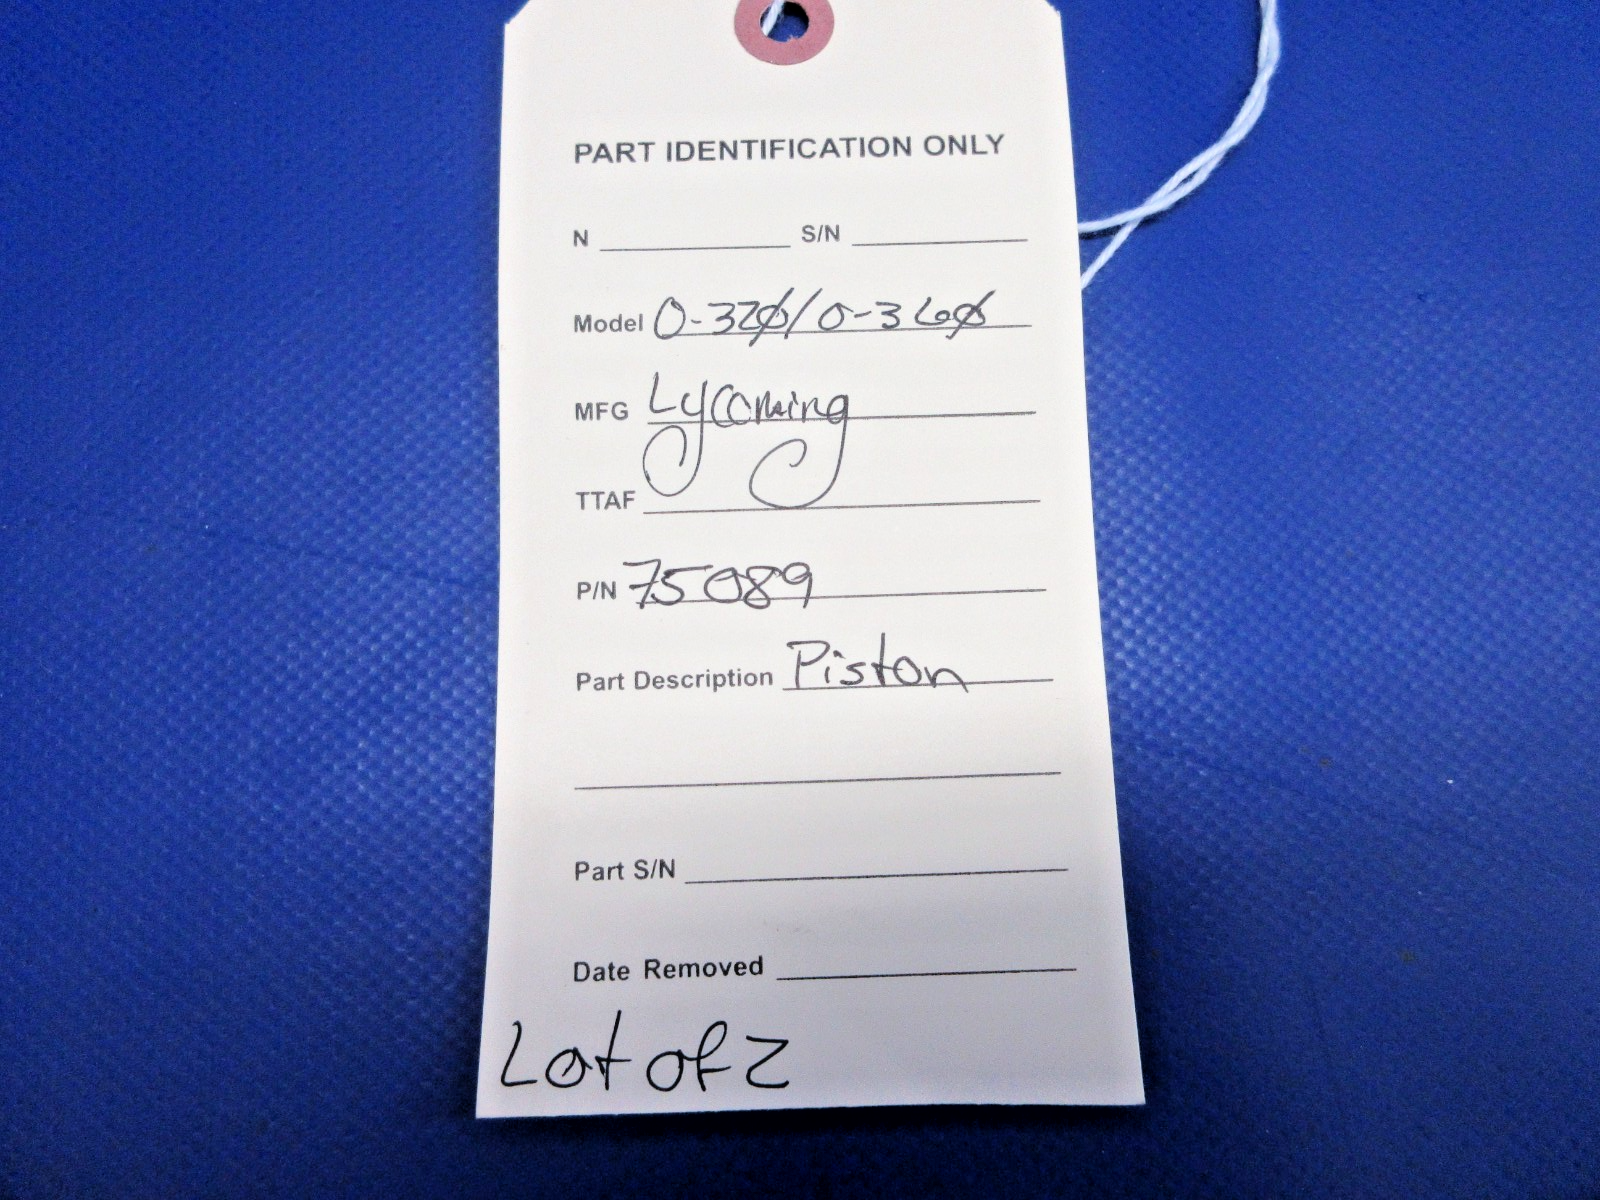 PART IDENTIFICATION ONLY
N S/N
Model O-320/O-360
MFG Lycoming
TTAF
P/N 75089
Part Description Piston
Part S/N
Date Removed
Lot of 2